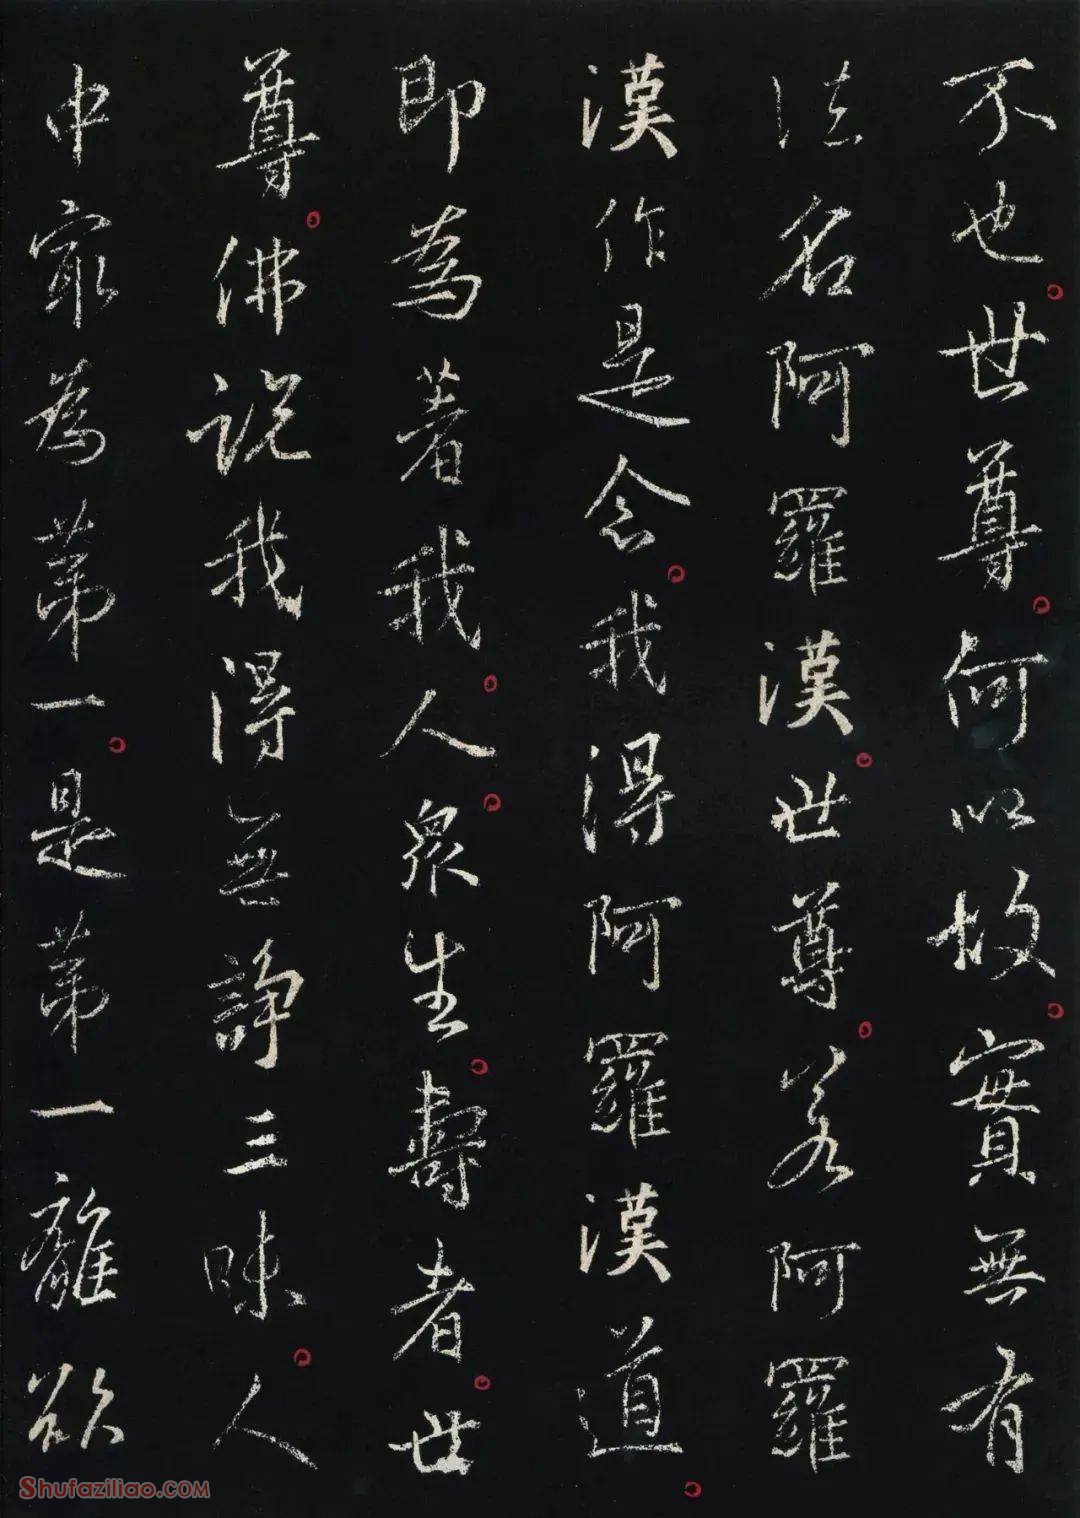 不也世尊何以故實無有
法名阿羅漢世尊若阿羅
漢作是念我得阿羅漢道
即為著我人眾生壽者世
尊佛說我得無諍三昧人
中最為第一是第一離欲
Shufaziliao.COM